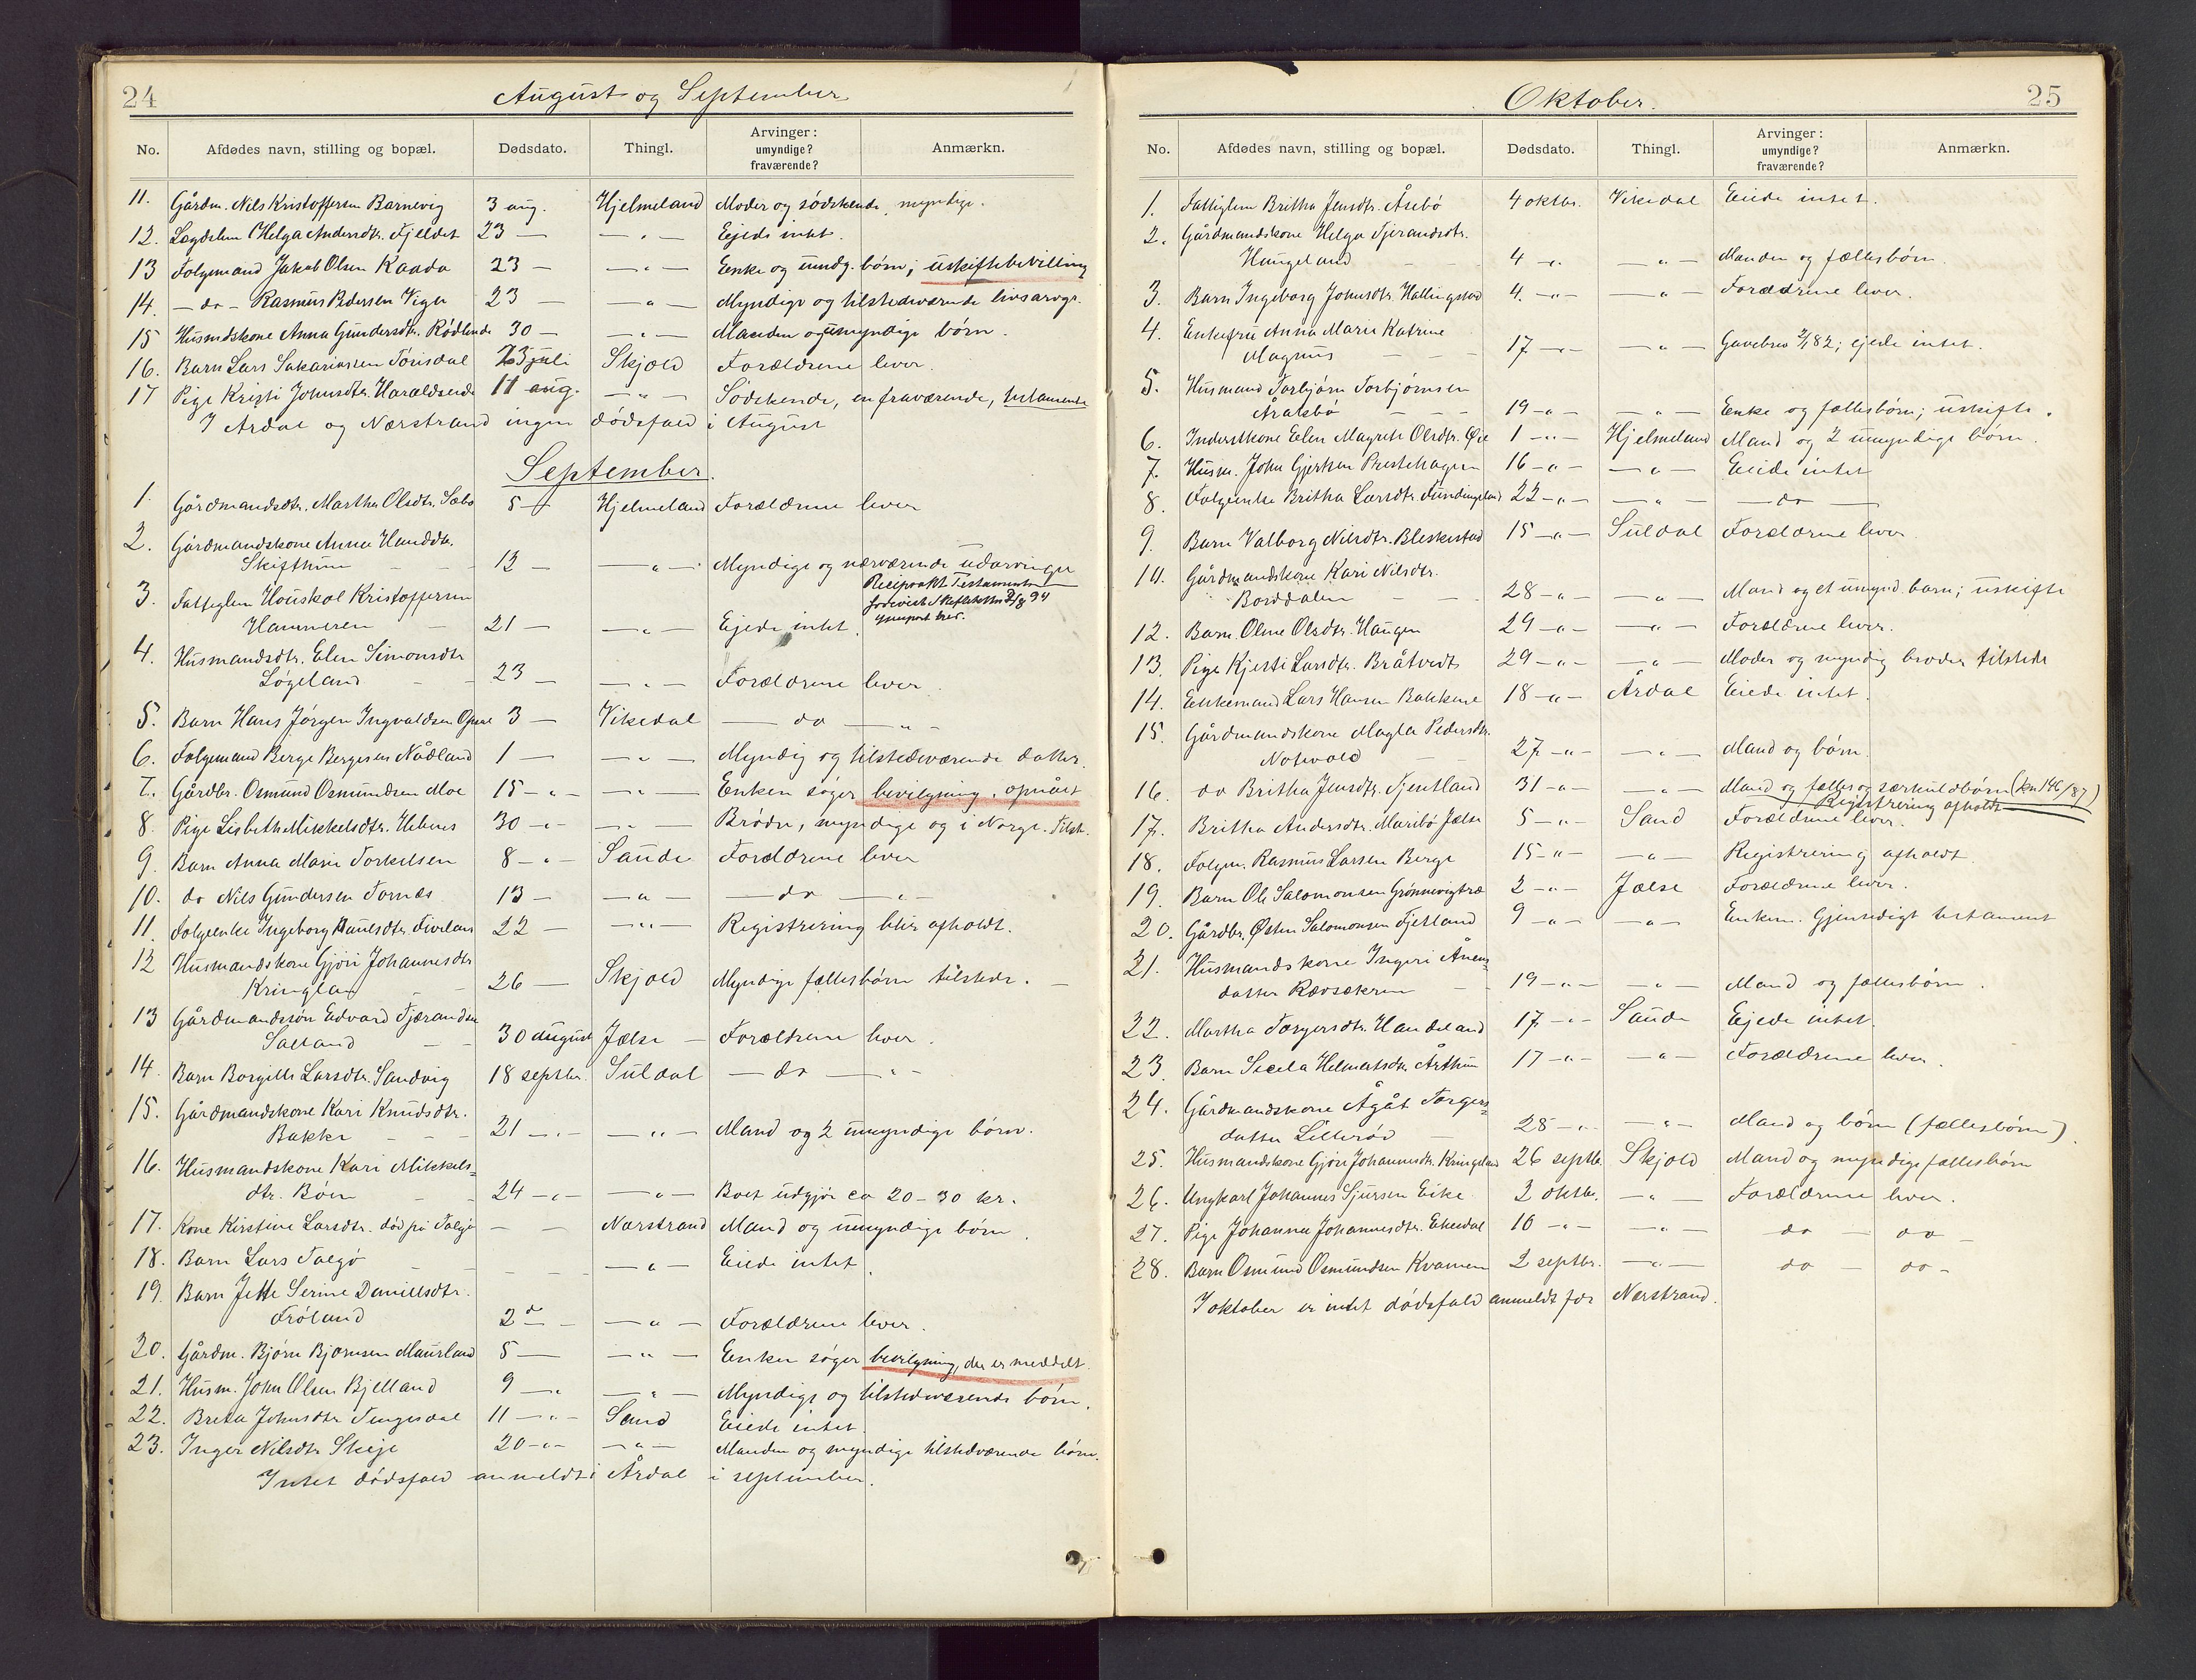 24
August og September
No. Afdødes navn, stilling og bopæl. Dødsdato. Thingl. Arvinger: umyndige? fraværende? Anmærkn.
11. Gårdm. Nils Kristoffersen Barnevig 3 aug. Hjelmeland Moder og sødskende, myndige.
12. Lægdslem Helga Andersdtr. Fjeldet 23 — — „ — Ejede intet.
13 Folgemand Jakob Olsen Kaada 23 — — „ — Enke og umdg. børn; uskiftebevilling
14. — do — Rasmus Pedersen Viga 23 — — „ — Myndige og tilstedeværende livsarvgr.
15 Husmdskone Anna Gundersdtr. Rødlende 30 — — „ — Manden og umyndige børn.
16. Barn Lars Sakariassen Tørisdal 23 juli Skjold Forældrene lever.
17 Pige Kristi Johnsdtr. Haraldseide 11 aug. — „ — Sødskende, en fraværende, testamente
I Årdal og Nærstrand ingen dødsfald i August
September.
1. Gårdmandsdtr. Martha Olsdtr. Sæbø 5 — Hjelmeland Forældrene lever
2. Gårdmandskone Anna Hansdtr.
Skifthun — — 12 — — „ — Myndige og nærværende udarvinger
Reciprokt Testamente
3. Fattiglem Houskol Kristoffersen
Hammeren — 21 — — „ — Ejede intet.
4. Husmandsdtr. Elen Simonsdtr
Løgeland — — 23 — — „ — Forældrene lever.
5. Barn Hans Jørgen Ingvaldsen Opsal 3 — Vikedal — do — „ —
6. Folgemand Berge Bergesen Nådland 1 — — „ — Myndig og tilstedeværende datter.
7. Gårdbr. Osmund Osmundsen Moe 15 — „ — — „ — Enken søger bevilgning, opnået
8. Pige Lisbeth Mikkelsdtr. Hebnes 30 — „ — — „ — Brødre, myndige og i Norge. Tilst.
9. Barn Anna Marie Torkelsen 8 — „ — Saude Forældrene lever
10. do Nils Gundersen Tornæs 13 — — „ — — do — „ —
11. Folgeenke Ingeborg Paulsdtr. Fiveland 22 — — „ — Registrering blir afholdt.
12 Husmandskone Gjøri Johannesdtr
Kringlan — — 26 — Skjold Myndige fællesbørn tilstede. —
13 Gårdmandssøn Edvard Tjærandsen
Salland — — 30 august Jælse — Forældrene lever.
14. Barn Borgille Larsdtr. Sandvig 18 septbr. Suldal — do — „ —
15. Gårdmandskone Kari Knudsdtr.
Bakke — — — 21 — „ — — „ — Mand og 2 umyndige børn.
16. Husmandskone Kari Mikkels=
dtr. Bøen — — 24 — „ — — „ — Boet udgjør ca 20 - 30 kr.
17. Kone Kirstine Larsdtr. død på Talgje — — Nærstrand Mand og umyndige børn.
18. Barn Lars Talgø — — — — „ — Eiede intet.
19. Barn Jette Serine Danielsdtr.
Frøland 2 — — „ — Forældrene lever.
20. Gårdm. Bjørn Bjørnsen Maurland 5 — — „ — Enken søger bevilgning, der er meddelt.
21. Husm. John Olsen Bjelland 9 — „ — „ — Myndige og tilstedeværende børn.
22. Breta Johnsdtr Tengesdal 11 — „ — Sand Eiede intet.
23. Inger Nilsdtr Skeje 20 — „ — — „ — Manden og myndige tilstedværende børn.
Intet dødsfald anmeldt i Årdal i september.
25
Oktober.
No. Afdødes navn, stilling og bopæl. Dødsdato. Thingl. Arvinger: umyndige? fraværende? Anmærkn.
1. Fattiglem Britha Jensdtr. Åsebø 4 oktbr. Vikedal Eiede intet.
2. Gårdmandskone Helga Tjerandsdtr.
Haugeland — — 4 — „ — — „ — Manden og fællesbørn
3. Barn Ingeborg Johnsdtr. Hallingstad 4. — „ — — „ — Forældrene lever.
4. Enkefru Anna Marie Katrine
Magnus — — — 17 — „ — — „ — Gavebrev 2/1 82; ejede intet.
5. Husmand Torbjørn Torbjørnsen
Åralsbø — — — 19 — „ — — „ — Enke og fællesbørn; uskifte.
6. Inderstkone Elen Magrete Olsdtr. Øie 1 — „ — Hjelmeland Mand og 2 umyndige børn.
7. Husm. John Gjertsen Prestehagen 16 — „ — — „ — Eiede intet
8. Folgeenke Britha Larsdtr. Fundingsland 22 — „ — — „ — — do —
9. Barn Valborg Nilsdtr. Bleskestad 15 — „ — Suldal Forældrene lever
10. Gårdmandskone Kari Nilsdtr.
Borddalen — — 28 — „ — — „ — Mand og et umynd. barn; uskifte
12. Barn Olene Olsdtr. Haugen 29 — „ — — „ — Forældrene lever.
13. Pige Kjersti Larsdtr. Bråtvedt 29 — „ — — „ — Moder og myndig broder tilstede
14. Enkemand Lars Hansen Bakkene 18 — „ — Årdal Eiede intet.
15. Gårdmandskone Magla Pedersdtr.
Notvold — — 27 — „ — — „ — Mand og børn.
16. do Britha Jensdtr. Tjentland 31 — „ — — „ — Mand og fælles og særkuldbørn (kn 146/87)
Registrering afholdt
17. Britha Andersdtr. Maribø Jælse 5 — „ — Sand Forældrene lever.
18. Folgem. Rasmus Larsen Berge 15 — „ — — „ — Registrering afholdt
19. Barn Ole Salomonsen Grønnevigtræ 2 — „ — Jælse Forældrene lever.
20. Gårdbr. Østen Salomonsen Fjetland 9 — „ — — „ — Enken. Gjensidigt testament
21. Husmandskone Ingeri Ånens=
datter Rævsækren — 19 — „ — — „ — Mand og fællesbørn.
22. Martha Torgersdtr. Handeland 17 — „ — Saude Ejede intet.
23. Barn Secela Helmertsdtr Århun 17 — „ — — „ — Forældrene lever.
24. Gårdmandskone Ågåt Torgers=
datter Lillerød — 28 — „ — — „ — Mand og børn (fællesbørn).
25. Husmandskone Gjøri Johannesdtr. Kringeland 26 septbr. Skjold Mand og myndige fællesbørn
26. Ungkarl Johannes Sjursen Eike 2 oktbr. — „ — Forældrene lever.
27. Pige Johanna Johannesdtr. Eikedal 10 — „ — — „ — do — do —
28. Barn Osmund Osmundsen Kvamen 2 septbr. — „ — do — do —
I oktober er intet dødsfald anmeldt for Nærstrand.